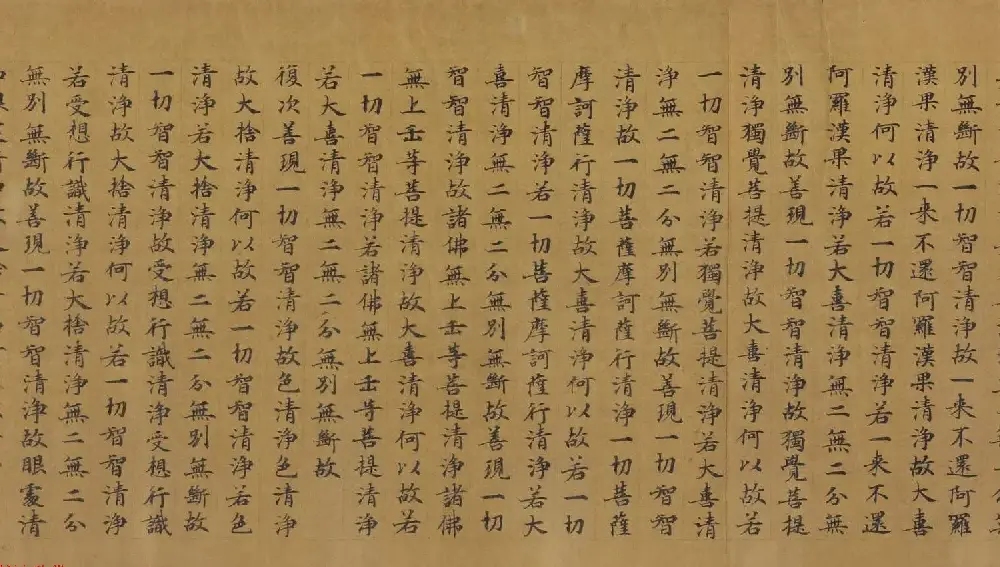 別無斷故一切智智清淨故一來不還阿羅
漢果清淨一來不還阿羅漢果清淨故大喜
清淨何以故若一切智智清淨若一來不還
阿羅漢果清淨若大喜清淨無二無二分無
別無斷故善現一切智智清淨故獨覺菩提
清淨獨覺菩提清淨故大喜清淨何以故若
一切智智清淨若獨覺菩提清淨若大喜清
淨無二無二分無別無斷故善現一切智智
清淨故一切菩薩摩訶薩行清淨一切菩薩
摩訶薩行清淨故大喜清淨何以故若一切
智智清淨若一切菩薩摩訶薩行清淨若大
喜清淨無二無二分無別無斷故善現一切
智智清淨故諸佛無上正等菩提清淨諸佛
無上正等菩提清淨故大喜清淨何以故若
一切智智清淨若諸佛無上正等菩提清淨
若大喜清淨無二無二分無別無斷故
復次善現一切智智清淨故色清淨色清淨
故大捨清淨何以故若一切智智清淨若色
清淨若大捨清淨無二無二分無別無斷故
一切智智清淨故受想行識清淨受想行識
清淨故大捨清淨何以故若一切智智清淨
若受想行識清淨若大捨清淨無二無二分
無別無斷故善現一切智智清淨故眼處清